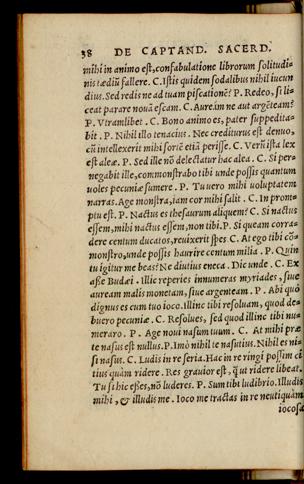 38 DE CAPTAND. SACERD.
mihi in animo est, confabulatione librorum solitudi-
nis tædiũ fallere. C. Istis quidem sodalibus nihil iucun
dius. Sed redis ne ad tuam piscationẽ? P. Redeo, si li-
ceat parare nouã escam. C. Aure.im ne aut argẽteam?
P. Vtramlibet. C. Bono animo es, pater suppedita-
bit. P. Nihil illo tenacius. Nec crediturus est denuo,
cũ intellexerit mihi soriẽ etiã perisse. C. Verũ ista lex
est aleæ. P. Sed ille nõ delectatur hac alea. C. Si per-
negabit ille, commonstrabo tibi unde possis quantum
uoles pecuniæ sumere. P. Tu uero mihi uoluptatem
narras. Age monstra, iam cor mihi salit. C. In prom-
ptu est. P. Nactus es thesaurum aliquem? C. Si nactus
essem, mihi nactus essem, non tibi. P. Si queam corra-
dere centum ducatos, reuixerit spes C. At ego tibi cõ-
monstro, unde possis haurire centum milia. P. Quin
tu igitur me beas? Ne diutius eneca. Dic unde. C. Ex
aße Budæi. Illic reperies innumeras myriades, siue
auream malis monetam, siue argenteam. P. Abi quò
dignus es cum tuo ioco. Illinc tibi resoluam, quod de-
buero pecuniæ. C. Resolues, sed quod illinc tibi nu-
meraro. P. Age noui nasum tuum. C. At mihi præ
te nasus est nullus. P. Imò nihil te nasutius. Nihil es ni-
si nasus. C. Ludis in re seria. Hac in re ringi possim ci
tius quàm ridere. Res grauior est, q̃ ut ridere libeat.
Tu si hic esses, nõ luderes. P. Sum tibi ludibrio. Illudis
mihi, & illudis me. Ioco me tractas in re neutiquàm
iocosa